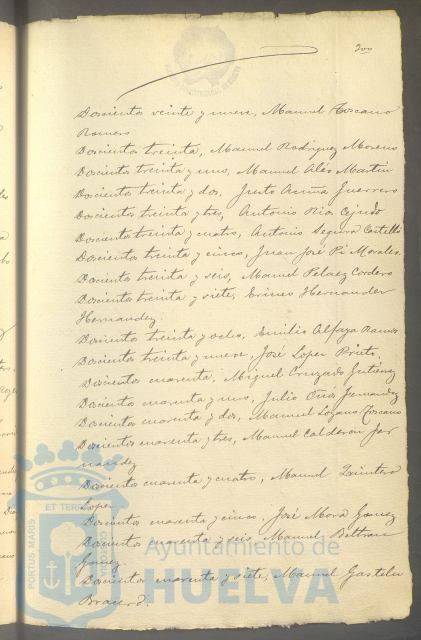 Doscientos veinte y nueve, Manuel Toscano
Romero
Doscientos treinta, Manuel Rodriguez Moreno
Doscientos treinta y uno, Manuel Alés Martin
Doscientos treinta y dos, Justo Guerrero
Doscientos treinta y tres, Antonio Rios Cejudo
Doscientos treinta y cuatro, Antonio Segura Castilla
Doscientos treinta y cinco, Juan José Pi Morales.
Doscientos treinta y seis, Manuel Pelaez Cordero
Doscientos treinta y siete, Erineo Hernandez
Hernandez.
Doscientos treinta y ocho, Emilio Alfaya Ramos
Doscientos treinta y nueve, José Lopez Prieto.
Doscientos cuarenta, Miguel Cruzado Gutierrez
Doscientos cuarenta y uno, Julio Fernandez
Doscientos cuarenta y dos, Manuel Lozano Toscano
Doscientos cuarenta y tres, Manuel Calderon Fer
nandez
Doscientos cuarenta y cuatro, Manuel Quintero
Lopez.
Doscientos cuarenta y cinco, José Mora Gomez
Doscientos cuarenta y seis, Manuel Beltran
Gomez.
Doscientos cuarenta y siete, Manuel
ET TERRAE CUSTODIA
PORTUS MARIS
Ayuntamiento de
HUELVA